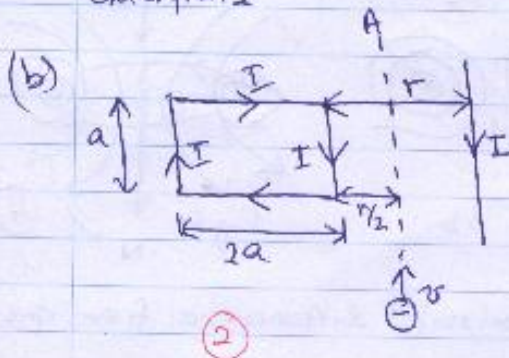 A
(b)
I
r
a
I
I
I
r/2
2a
v
2